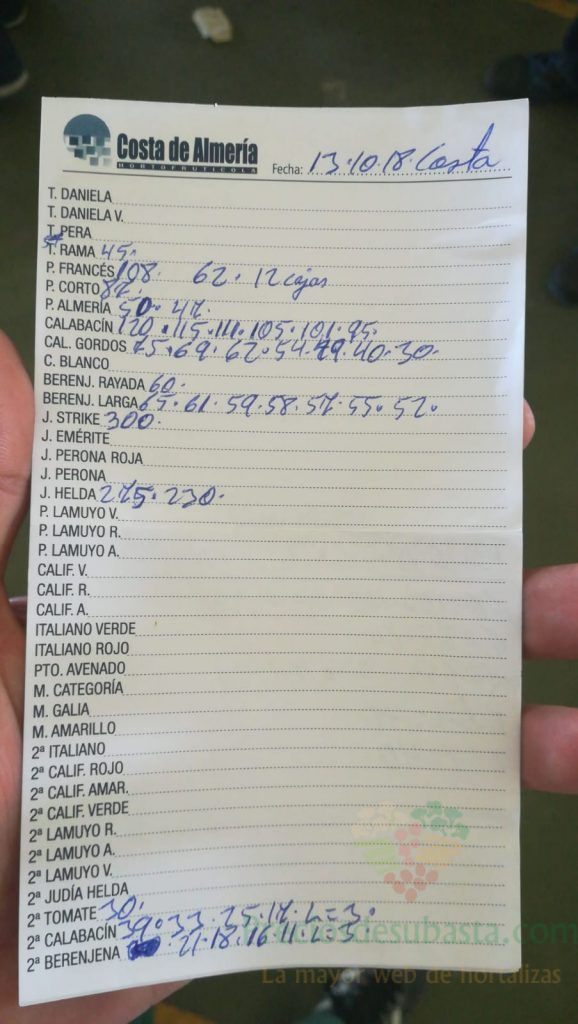 Costa de Almería
HORTOFRUTICOLA
Fecha: 13.10.18. Costa
T. DANIELA
T. DANIELA V.
T. PERA
T. RAMA 45.
P. FRANCÉS 108. 62. 12 cajas
P. CORTO 82.
P. ALMERÍA 50. 47.
CALABACÍN 120. 115. 111. 105. 101. 95.
CAL. GORDOS 75. 69. 62. 54. 49. 40. 30.
C. BLANCO
BERENJ. RAYADA 60.
BERENJ. LARGA 65. 61. 59. 58. 57. 55. 52.
J. STRIKE 300.
J. EMÉRITE
J. PERONA ROJA
J. PERONA
J. HELDA 275. 230.
P. LAMUYO V.
P. LAMUYO R.
P. LAMUYO A.
CALIF. V.
CALIF. R.
CALIF. A.
ITALIANO VERDE
ITALIANO ROJO
PTO. AVENADO
M. CATEGORÍA
M. GALIA
M. AMARILLO
2ª ITALIANO
2ª CALIF. ROJO
2ª CALIF. AMAR.
2ª CALIF. VERDE
2ª LAMUYO R.
2ª LAMUYO A.
2ª LAMUYO V.
2ª JUDÍA HELDA
2ª TOMATE 30.
2ª CALABACÍN 39. 33. 25. 17. L=3.
2ª BERENJENA 21. 18. 16. 11. L=3
preciosdesubasta.com
La mayor web de hortalizas